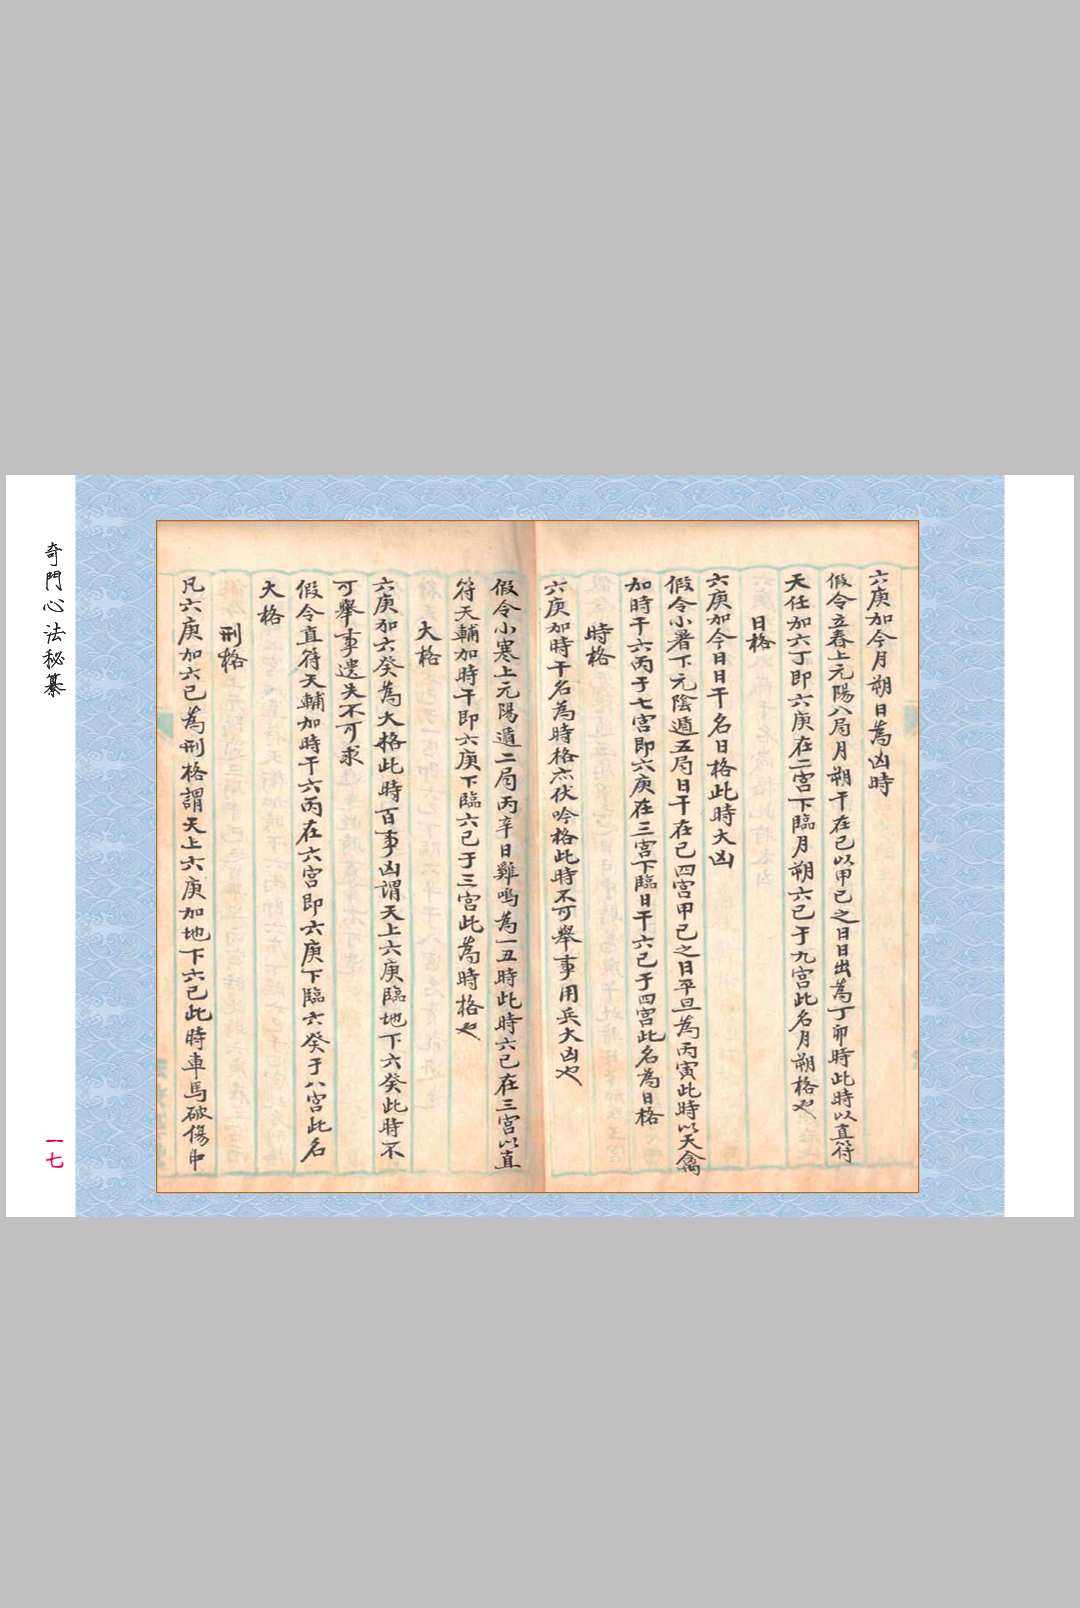 六庚加今月朔日為凶時
假令立春上元陽八局月朔干在己以甲己之日日出為丁卯時此時以直符
天任加六丁即六庚在二宮下臨月朔六己于九宮此名月朔格也
日格
六庚加今日日干名日格此時大凶
假令小暑下元陰遁五局日干在己四宮甲己之日平旦為丙寅此時以天禽
加時干六丙于七宮即六庚在三宮下臨日干六己于四宮此名為日格
時格
六庚加時干名為時格亦伏吟格此時不可舉事用兵大凶也
假令小寒上元陽遁二局丙辛日雞鳴為一丑時此時六己在三宮以直
符天輔加時干即六庚下臨六己于三宮此為時格也
大格
六庚加六癸為大格此時百事凶謂天上六庚臨地下六癸此時不
可舉事遺失不可求
假令直符天輔加時干六丙在六宮即六庚下臨六癸于八宮此名
大格
刑格
凡六庚加六己為刑格謂天上六庚加地下六己此時車馬破傷中
奇門心法秘纂
一七